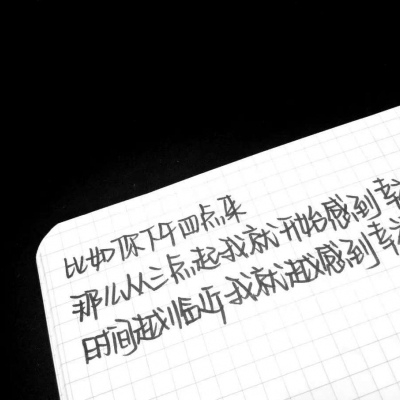 比如你下午四点来
那么从三点起我就开始感到幸
时间越临近我就越感到幸